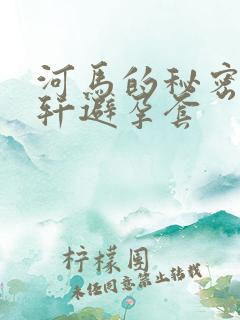 河马的秘密
轩避孕套
柠檬围
未经同意禁止转载